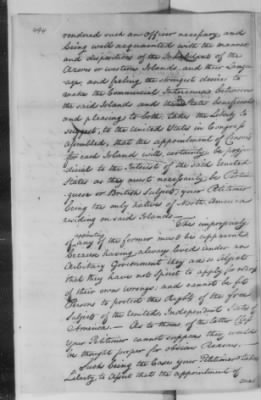 494
rendered such an officer necessary, and
being well acquainted with the manner
and disposition of the Inhabitants of the
Azores or western Islands, and their Langu-
age, and feeling the strongest desire to
make the Commercial Intercourse between
the said Islands and the States beneficial
and pleasing to both, takes the Liberty to
suggest, to the United States in Congress
assembled, that the appointment of Consuls
for each Island will certainly be preju-
dicial to the Interest of the said United
States as they must necessarily be Portu-
guese or British Subjects, your Petitioner
being the only native of North America
residing on said Islands —
The impropriety
of appointing any of the former must be apparent
because having always lived under an
Arbitrary Government they are so abject
that they have not Spirit to apply for redress
of their own wrongs, and cannot be fit
Persons to protect the Rights of the free
Subjects of the United Independent States of
America. — As to them of the latter Class
your Petitioner cannot suppose they would
be thought proper for obvious Reasons. —
Such being the Case, your Petitioner takes
Liberty to assert that the appointment of